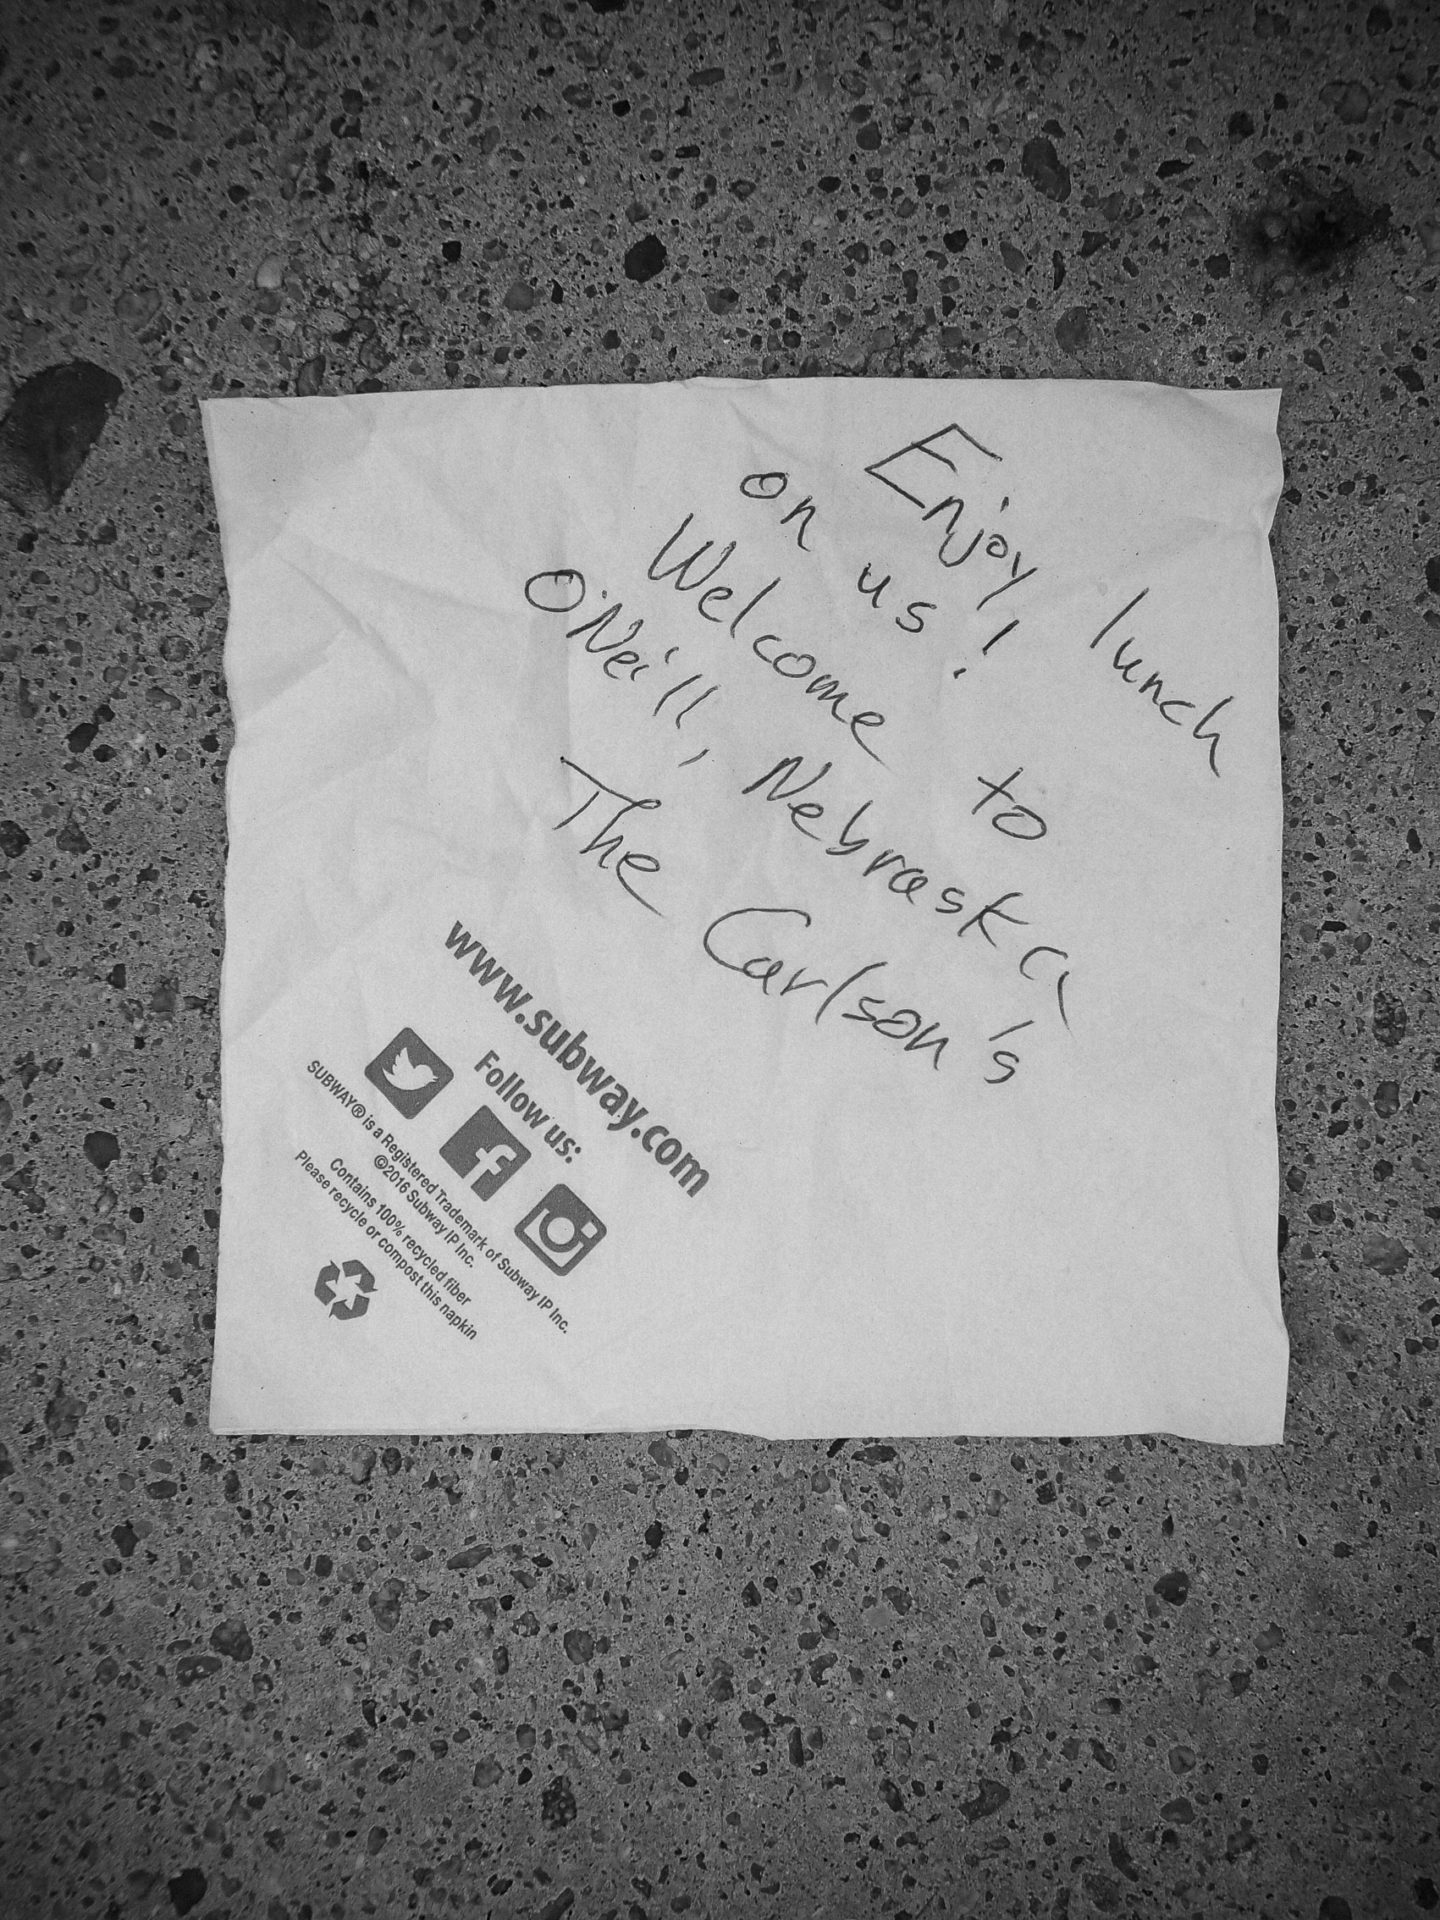 Enjoy lunch
on us!
Welcome to
O'Neill, Nebraska
The Carlson's
www.subway.com
Follow us:
SUBWAY® is a Registered Trademark of Subway IP Inc.
©2016 Subway IP Inc.
Contains 100% recycled fiber
Please recycle or compost this napkin